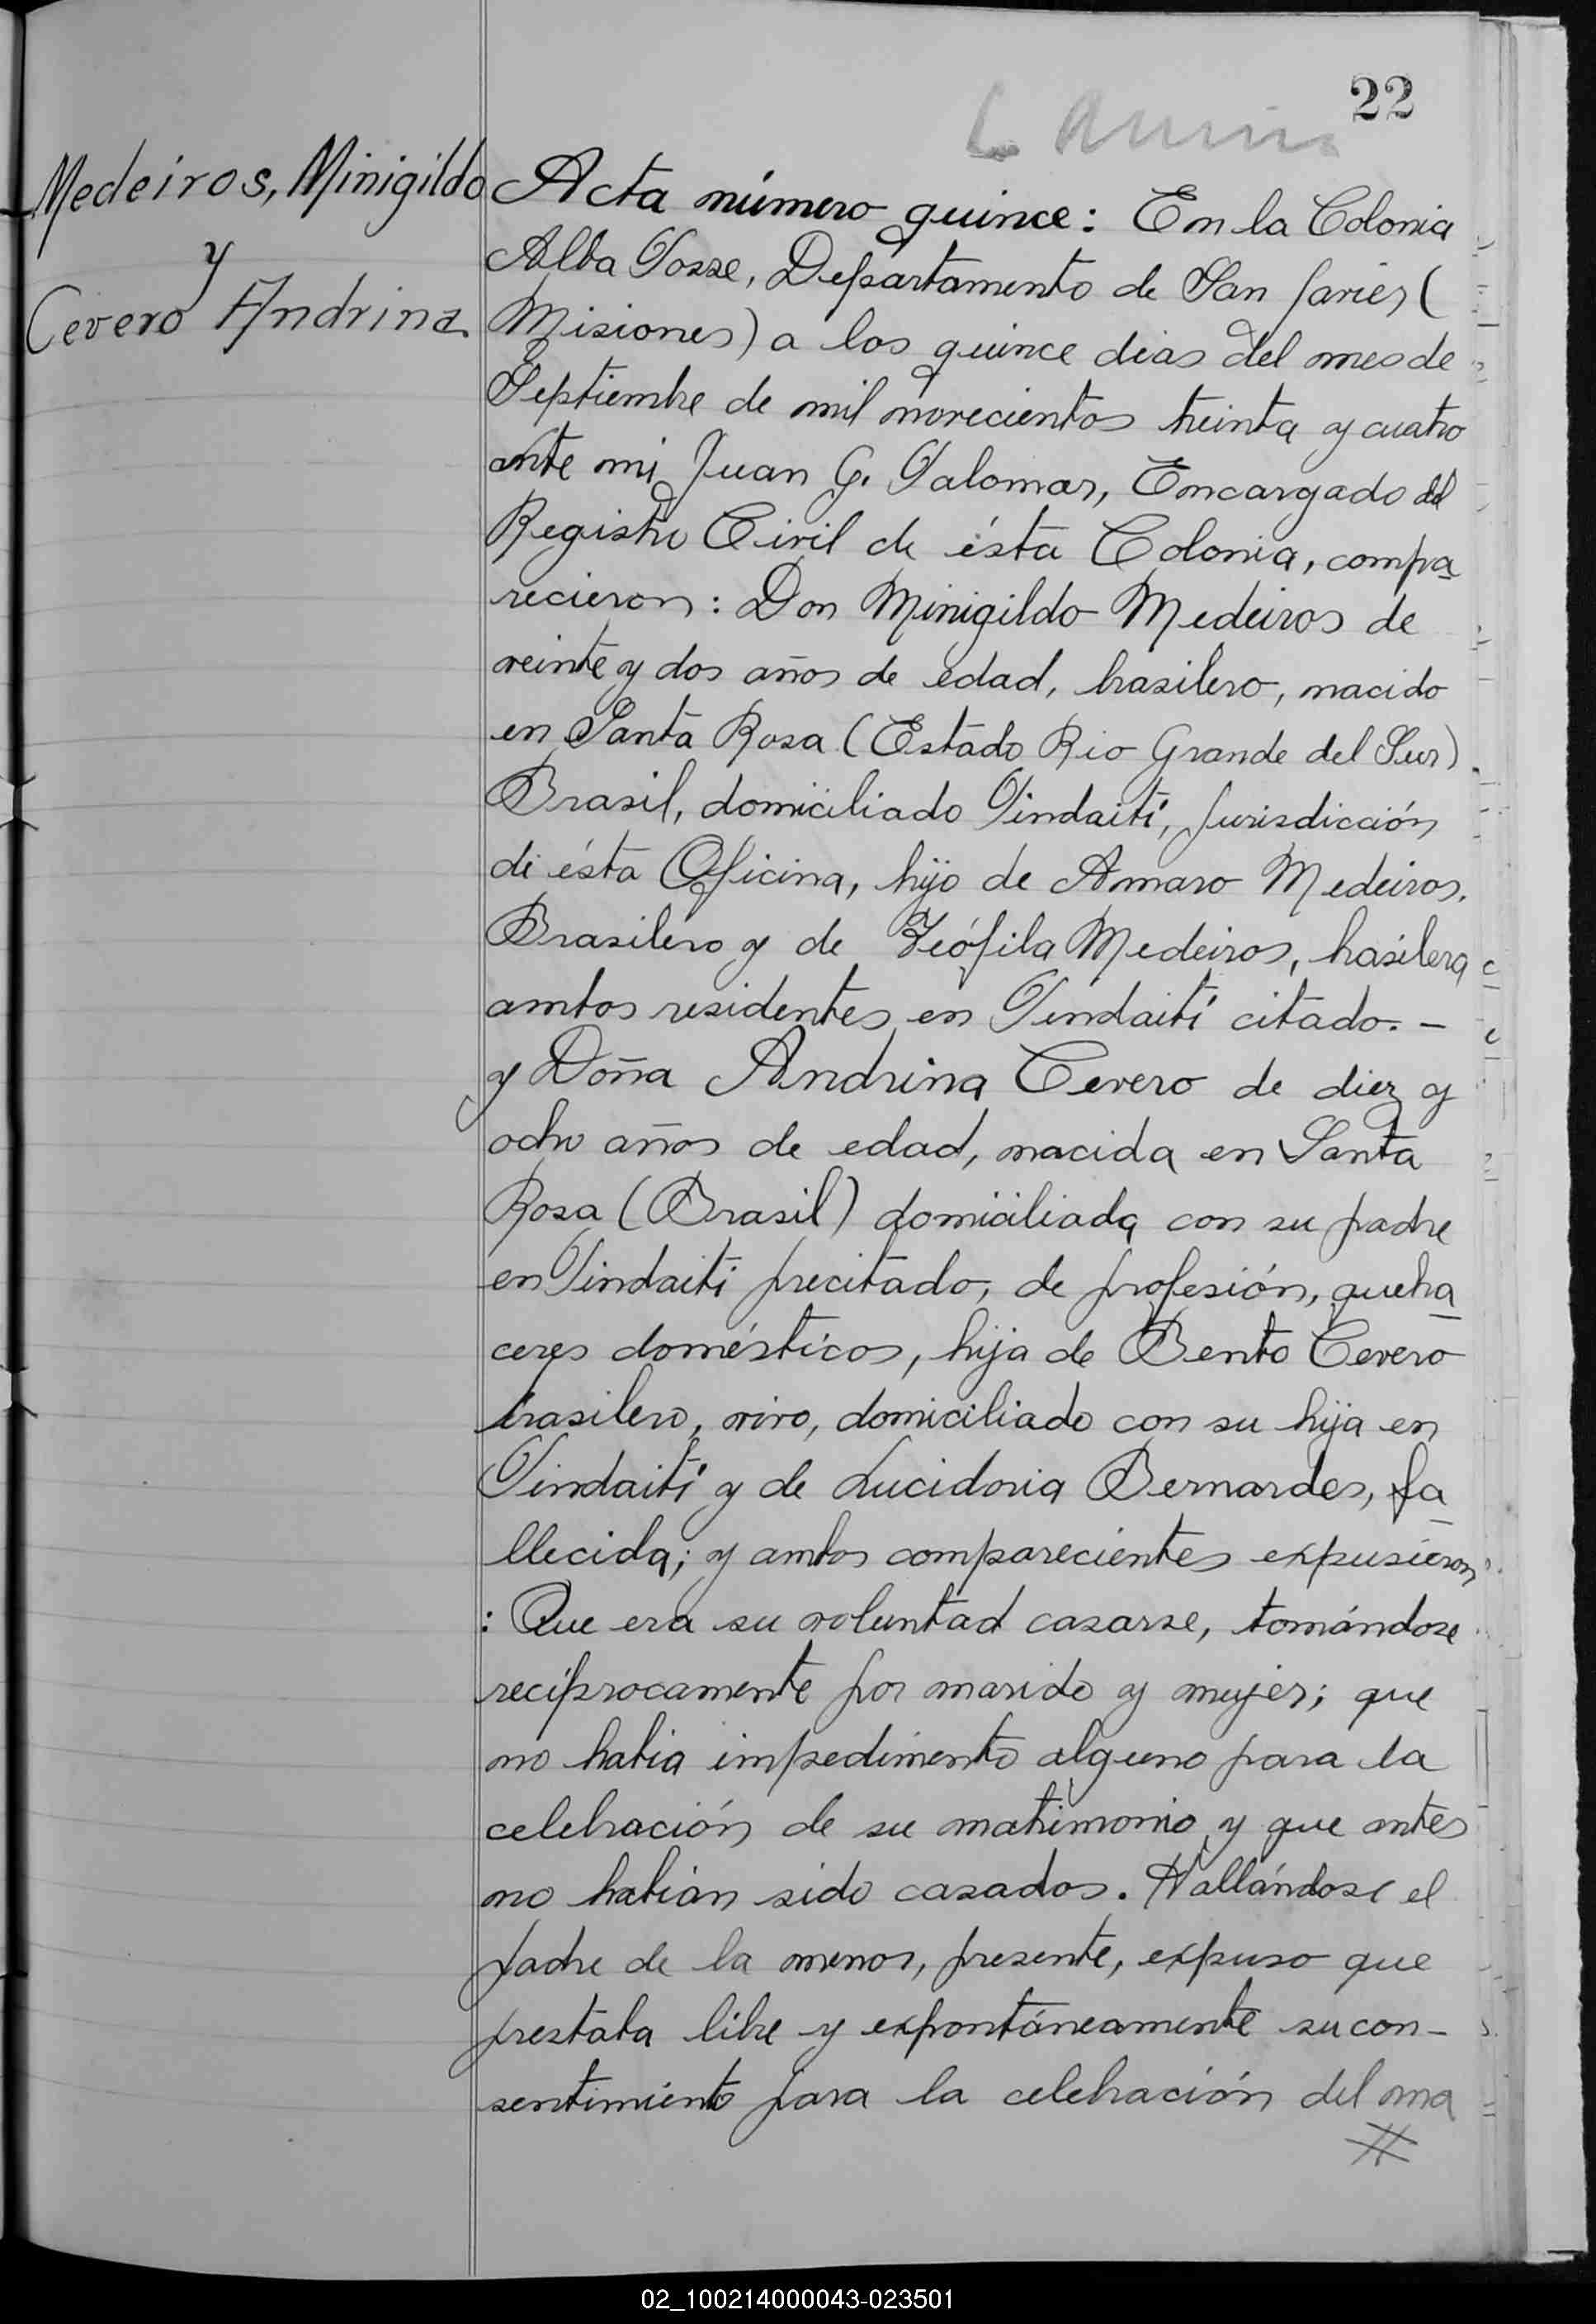 22
Medeiros, Minigildo
y
Cevero Andrina
Acta número quince: En la Colonia
Alba Posse, Departamento de San Javier (
Misiones) a los quince dias del mes de
Septiembre de mil novecientos treinta y cuatro
ante mi Juan G. Palomar, Encargado del
Registro Civil de ésta Colonia, compa
recieron: Don Minigildo Medeiros de
veinte y dos años de edad, brasilero, nacido
en Santa Rosa (Estado Rio Grande del Sur)
Brasil, domiciliado Pindaití, Jurisdicción
de ésta Oficina, hijo de Amaro Medeiros,
Brasilero y de Teófila Medeiros, brasilera
ambos residentes en Pindaití citado. -
y Doña Andrina Cevero de diez y
ocho años de edad, nacida en Santa
Rosa (Brasil) domiciliada con su padre
en Pindaití precitado, de profesión, queha
ceres domésticos, hija de Bento Cevero
brasilero, vivo, domiciliado con su hija en
Pindaití y de Lucidoria Bernardes, fa
llecida; y ambos comparecientes expusieron
: Que era su voluntad casarse, tomándose
recíprocamente por marido y mujer; que
no habia impedimento alguno para la
celebración de su matrimonio y que antes
no habian sido casados. Hallándose el
padre de la menor, presente, expuso que
prestaba libre y expontáneamente su con-
sentimiento para la celebración del ma
#
02_100214000043-023501